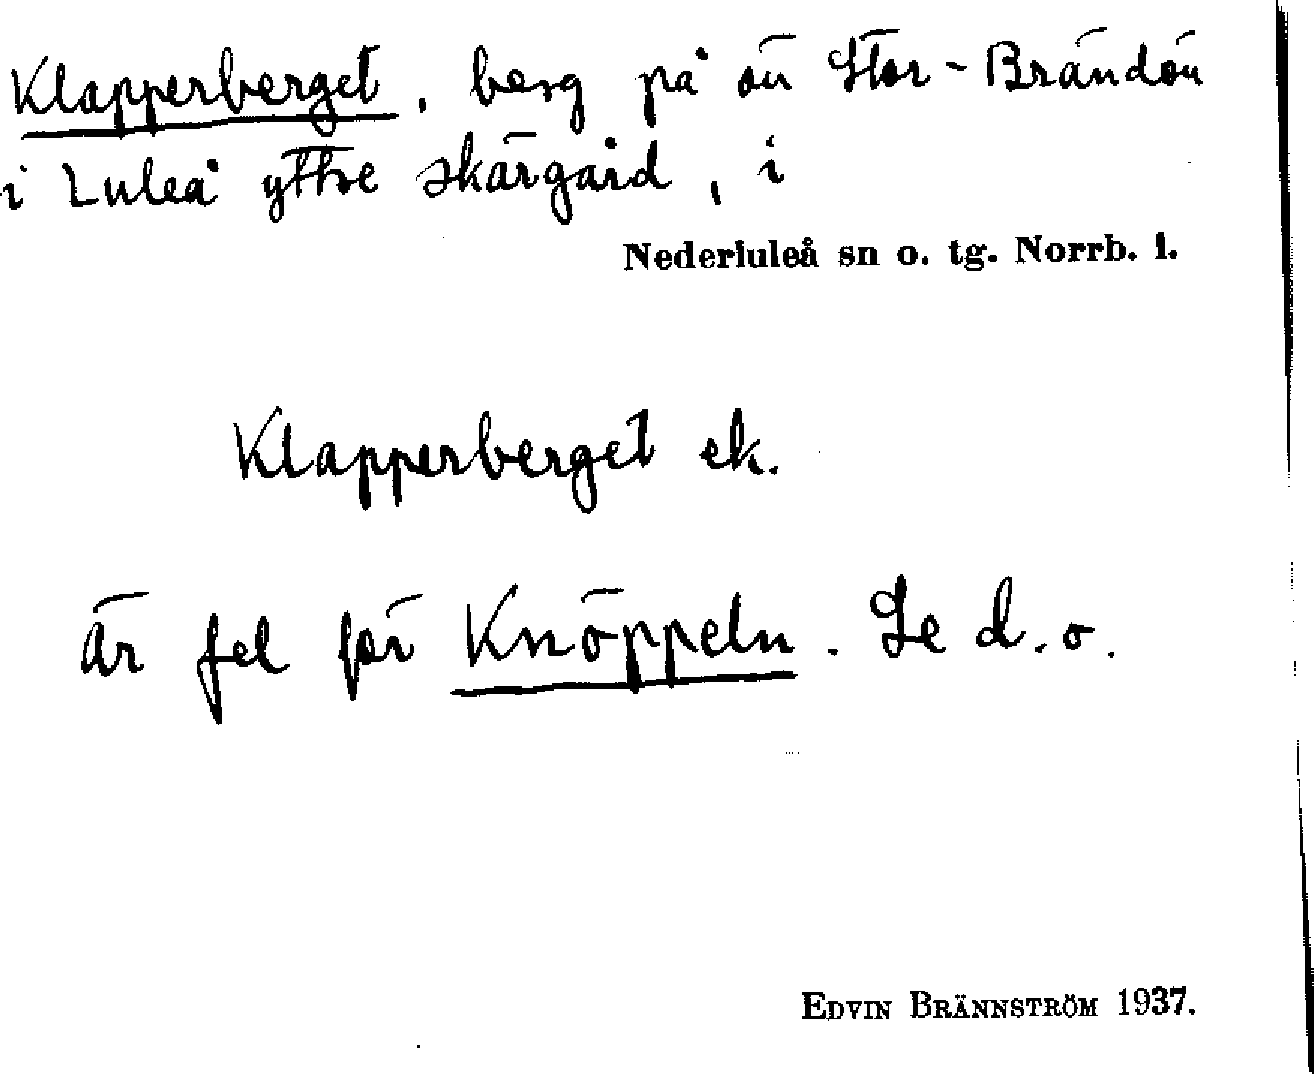 Klapperberget, berg på ön Stor-Brändön
i Luleå yttre skärgård, i
Nederluleå sn o. tg. Norrb. l.
Klapperberget ek.
är fel för Knöppeln. Se d.o.
EDVIN BRÄNNSTRÖM 1937.